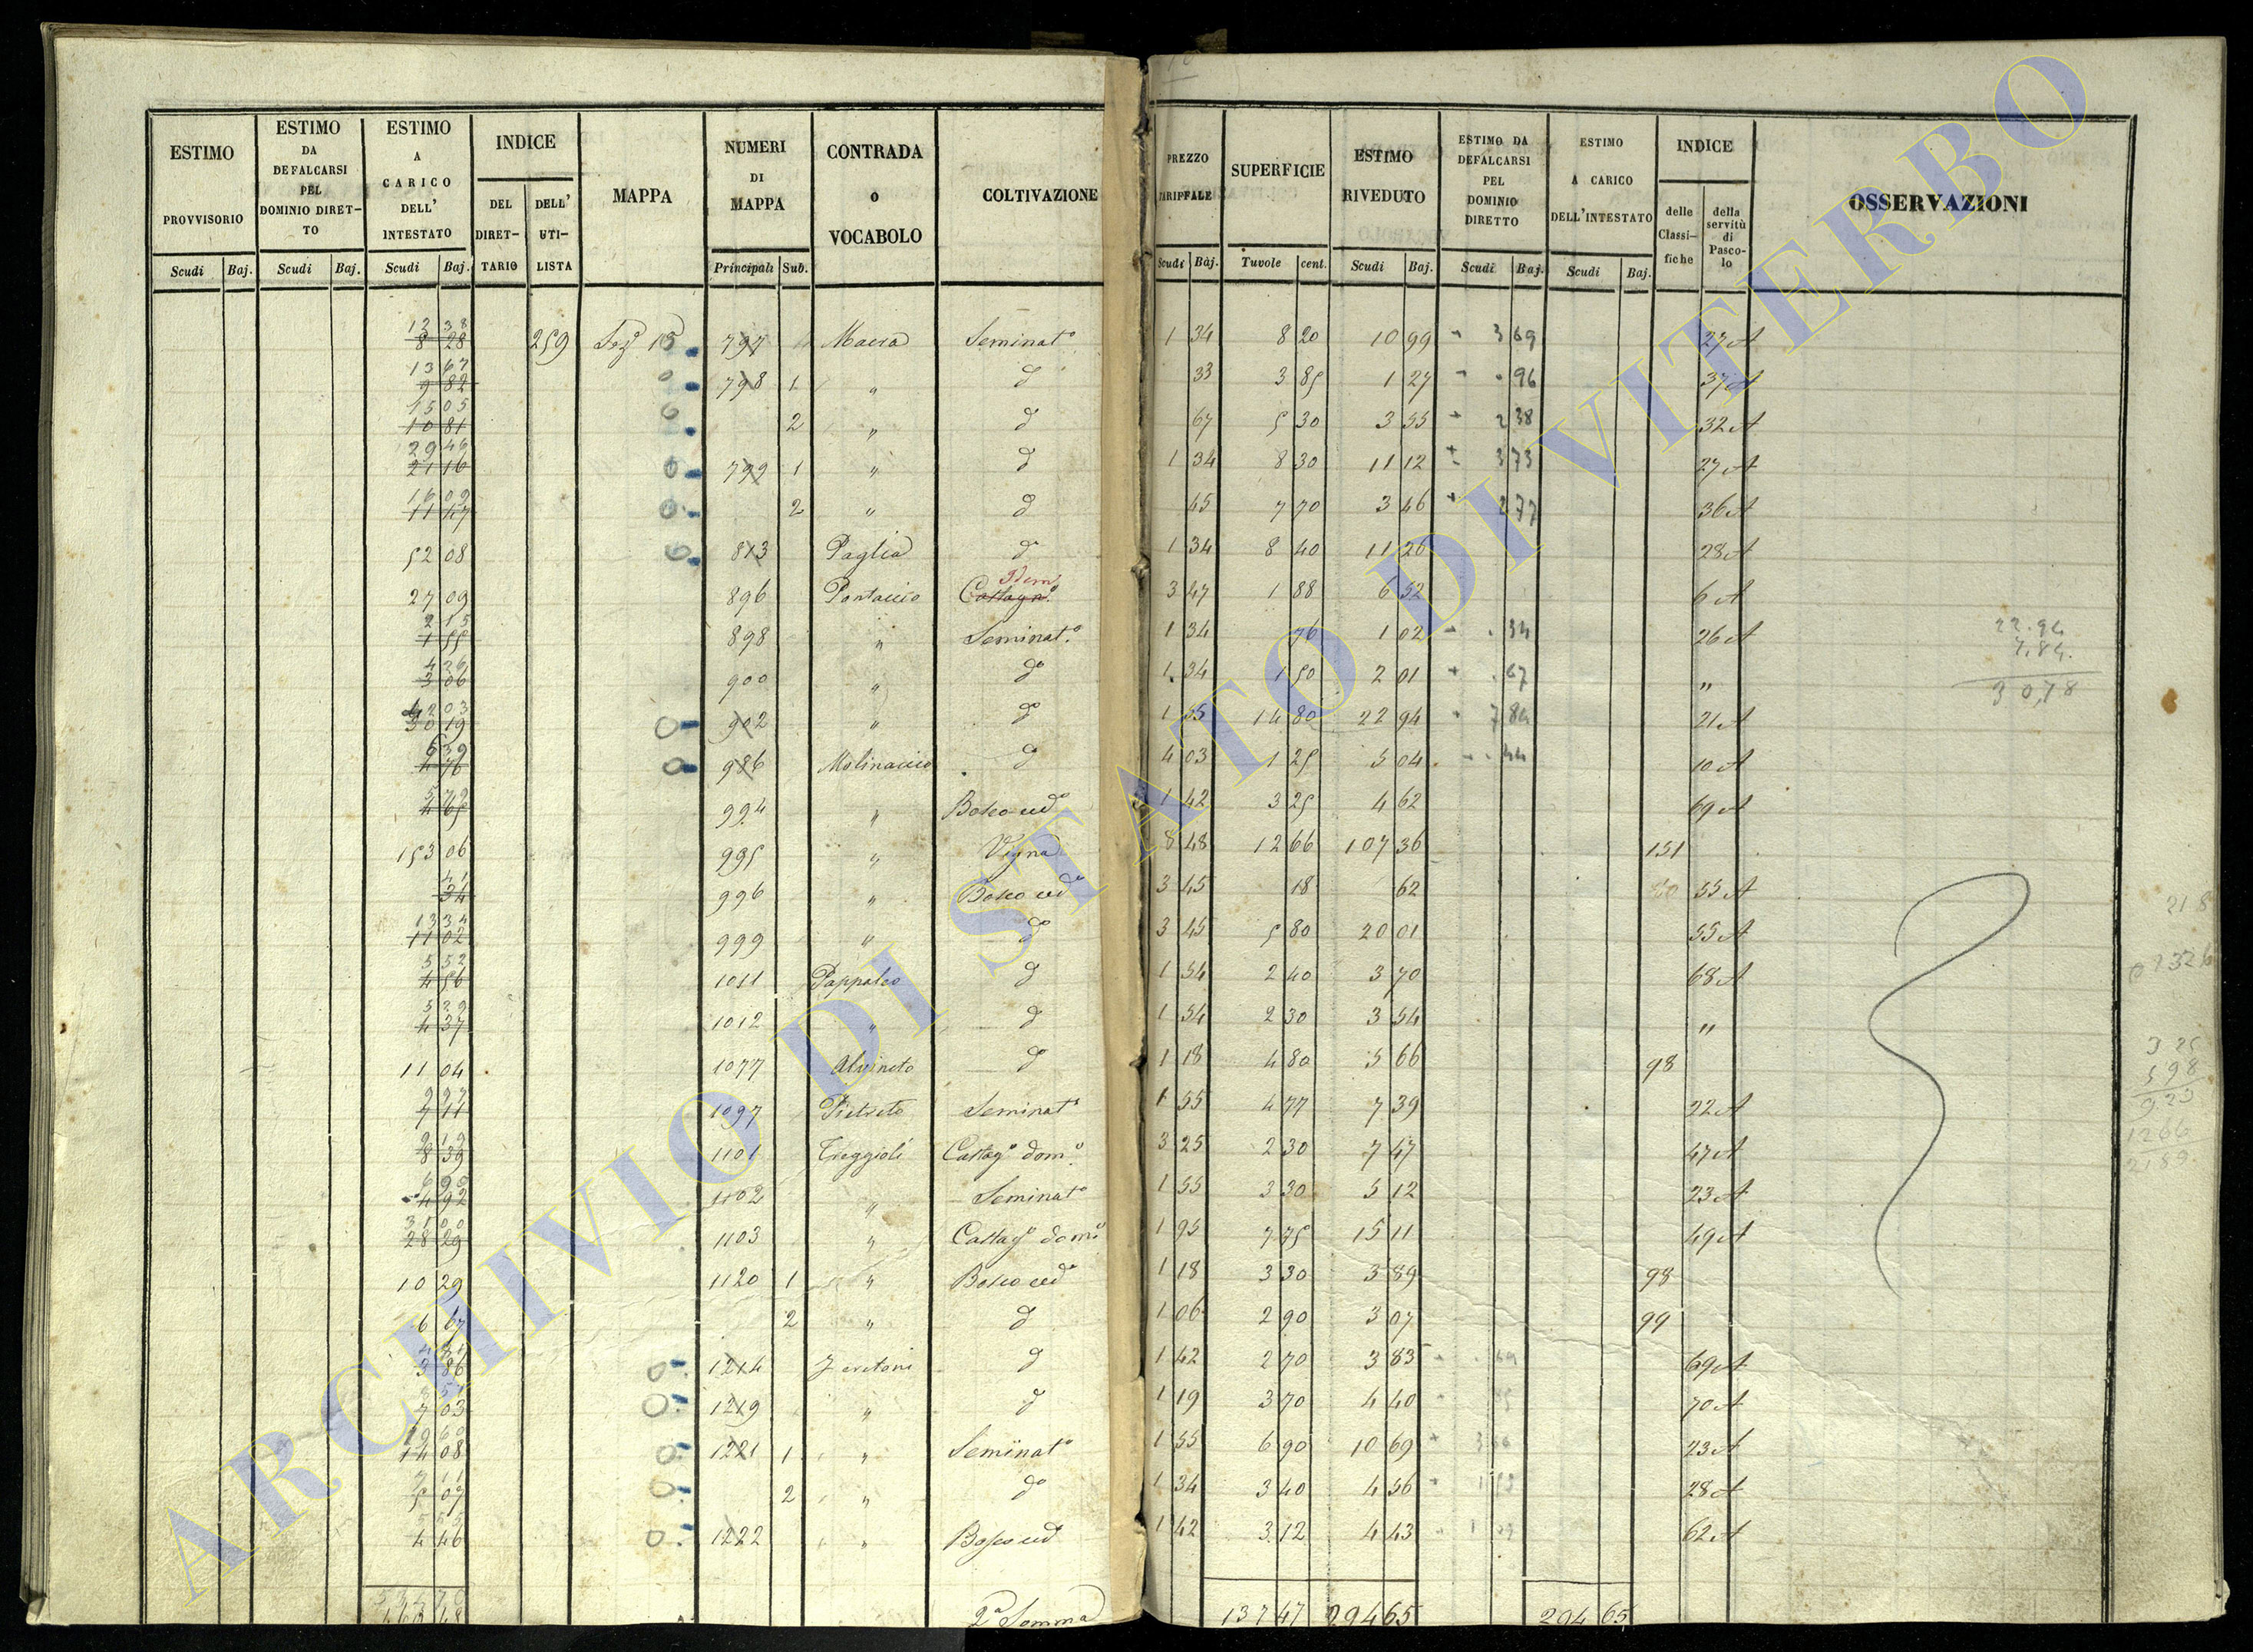 ESTIMO PROVVISORIO
ESTIMO DA DEFALCARSI PEL DOMINIO DIRET-TO
ESTIMO A CARICO DELL' INTESTATO
INDICE
DEL DIRET-TARIO
DELL' UTI-LISTA
MAPPA
NUMERI DI MAPPA
CONTRADA o VOCABOLO
COLTIVAZIONE
PREZZO TARIFFALE
SUPERFICIE
ESTIMO RIVEDUTO
ESTIMO DA DEFALCARSI PEL DOMINIO DIRETTO
ESTIMO A CARICO DELL'INTESTATO
INDICE
delle Classi-fiche
della servitù di Pasco-lo
OSSERVAZIONI
Scudi Baj. Scudi Baj. Scudi Baj. Principali Sub. Scudi Baj. Tavole cent. Scudi Baj. Scudi Baj. Scudi Baj.
12 38
8 28 259 15 797 Macea Seminato 1 34 8 20 10 99 3 69 27 A
13 67
9 82 798 1 " d 33 3 85 1 27 96 37 A
15 05
10 81 2 " d 67 5 30 3 55 2 38 32 A
29 46
21 16 799 1 " d 1 34 8 30 11 12 3 73 27 A
16 09
11 47 2 " d 45 7 70 3 46 2 77 36 A
52 08 813 Paglia d 1 34 8 40 11 26 28 A
Idem
27 09 896 Pontaccio Castagno 3 47 1 88 6 52 6 A
2 15
1 55 898 " Seminato 1 34 76 1 02 34 26 A
22.94
7.84.
30,78
4 26
3 06 900 " do 1 34 1 50 2 01 67 "
42 03
30 19 902 " d 1 55 14 80 22 94 7 84 21 A
6 39
4 76 986 Molinaccio d 4 03 1 25 5 04 44 10 A
5 79
4 65 994 " Bosco ced 1 42 3 25 4 62 69 A
153 06 995 " Vigna 8 48 12 66 107 36 151
41
34 996 " Bosco ced 3 45 18 62 55 A
13 34
11 02 999 " do 3 45 5 80 20 01 55 A
5 52
4 56 1011 Pappaleo d 1 54 2 40 3 70 68 A
5 29
4 37 1012 " d 1 54 2 30 3 54 "
11 04 1077 Alvineto d 1 18 4 80 5 66 98
7 11 1097 Pietreto Seminato 1 55 4 77 7 39 22 A
9 19
8 39 1101 Treggioli Castago domo 3 25 2 30 7 47 47 A
6 90
4 92 1102 " Seminato 1 55 3 30 5 12 23 A
31 00
28 29 1103 " Castago domo 1 95 7 75 15 11 49 A
10 29 1120 1 " Bosco ced 1 18 3 30 3 89 98
6 67 2 " d 1 06 2 90 3 07 99
3 86 1214 d 1 42 2 70 3 83 69 A
7 03 1219 " d 1 19 3 70 4 40 70 A
19 60
14 08 1221 1 " Seminato 1 55 6 90 10 69 23 A
5 07 2 " do 1 34 3 40 4 56 28 A
4 46 1222 " Bosco ced 1 42 3 12 4 43 62 A
2a Somma 137 47 294 65 294 65
1266
2189
ARCHIVIO DI STATO DI VITERBO